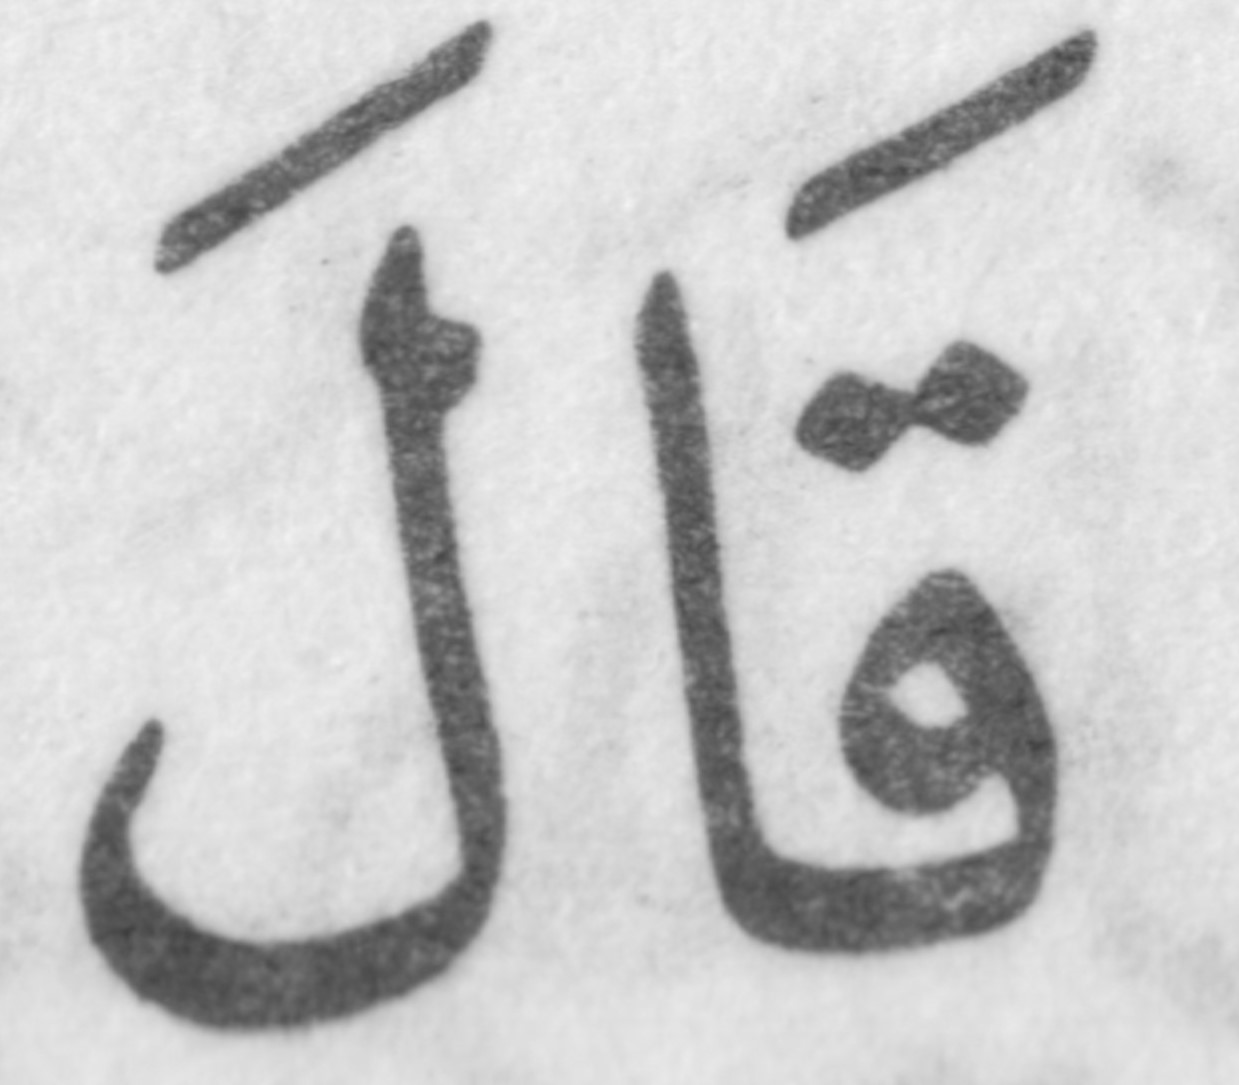 قَالَ